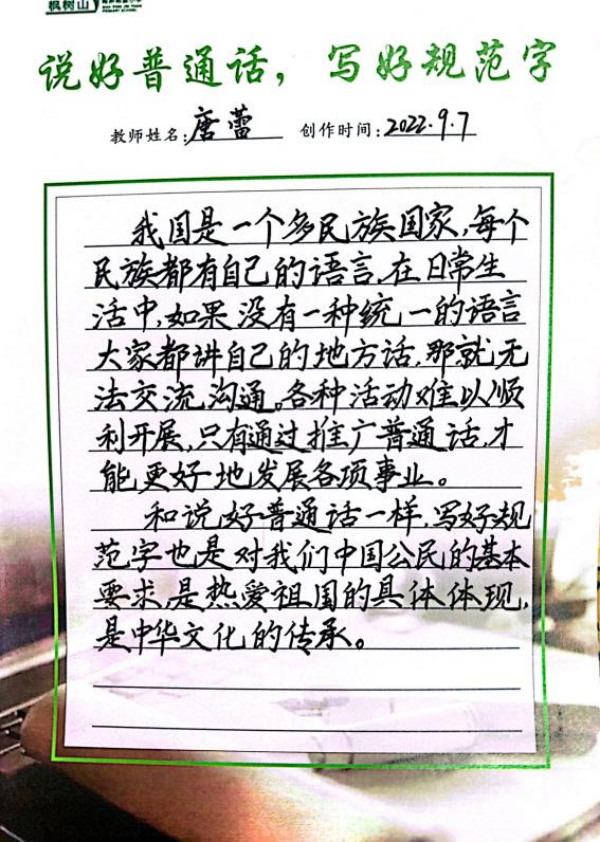 枫树山
说好普通话，写好规范字
教师姓名：唐蕾 创作时间：2022.9.7
我国是一个多民族国家，每个
民族都有自己的语言，在日常生
活中，如果没有一种统一的语言
大家都讲自己的地方话，那就无
法交流，沟通。各种活动难以顺
利开展，只有通过推广普通话，才
能更好地发展各项事业。
和说好普通话一样，写好规
范字也是对我们中国公民的基本
要求，是热爱祖国的具体体现，
是中华文化的传承。